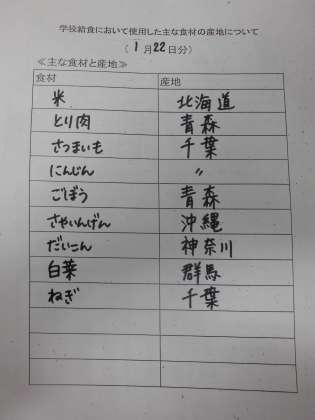 学校給食において使用した主な食材の産地について
(1月22日分)
≪主な食材と産地≫
食材 産地
米 北海道
とり肉 青森
さつまいも 千葉
にんじん 〃
ごぼう 青森
さやいんげん 沖縄
だいこん 神奈川
白菜 群馬
ねぎ 千葉